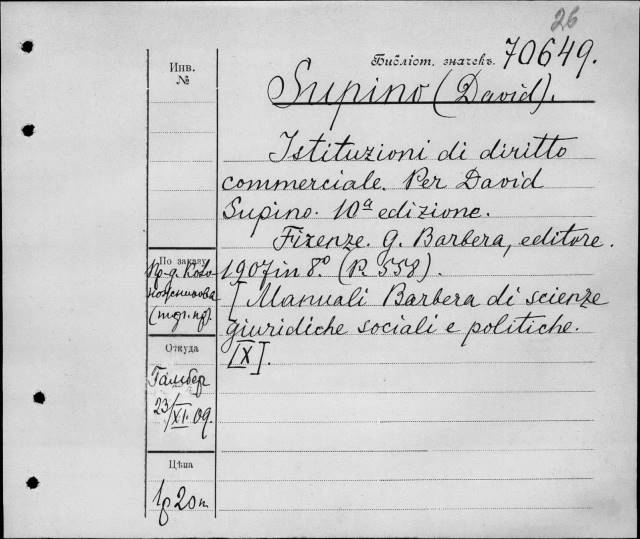 26
Библіот. значекъ. 70649.
Инв.
№
Supino (David).
Istituzioni di diritto
commerciale. Per David
Supino. 10ª edizione.
Firenze. G. Barbera, editore.
1907 in 8º (P. 558).
[Manuali Barbera di scienze
giuridiche sociali e politiche.
IX].
По заказу
Откуда
23/XI.09.
Цѣна
1р 20к